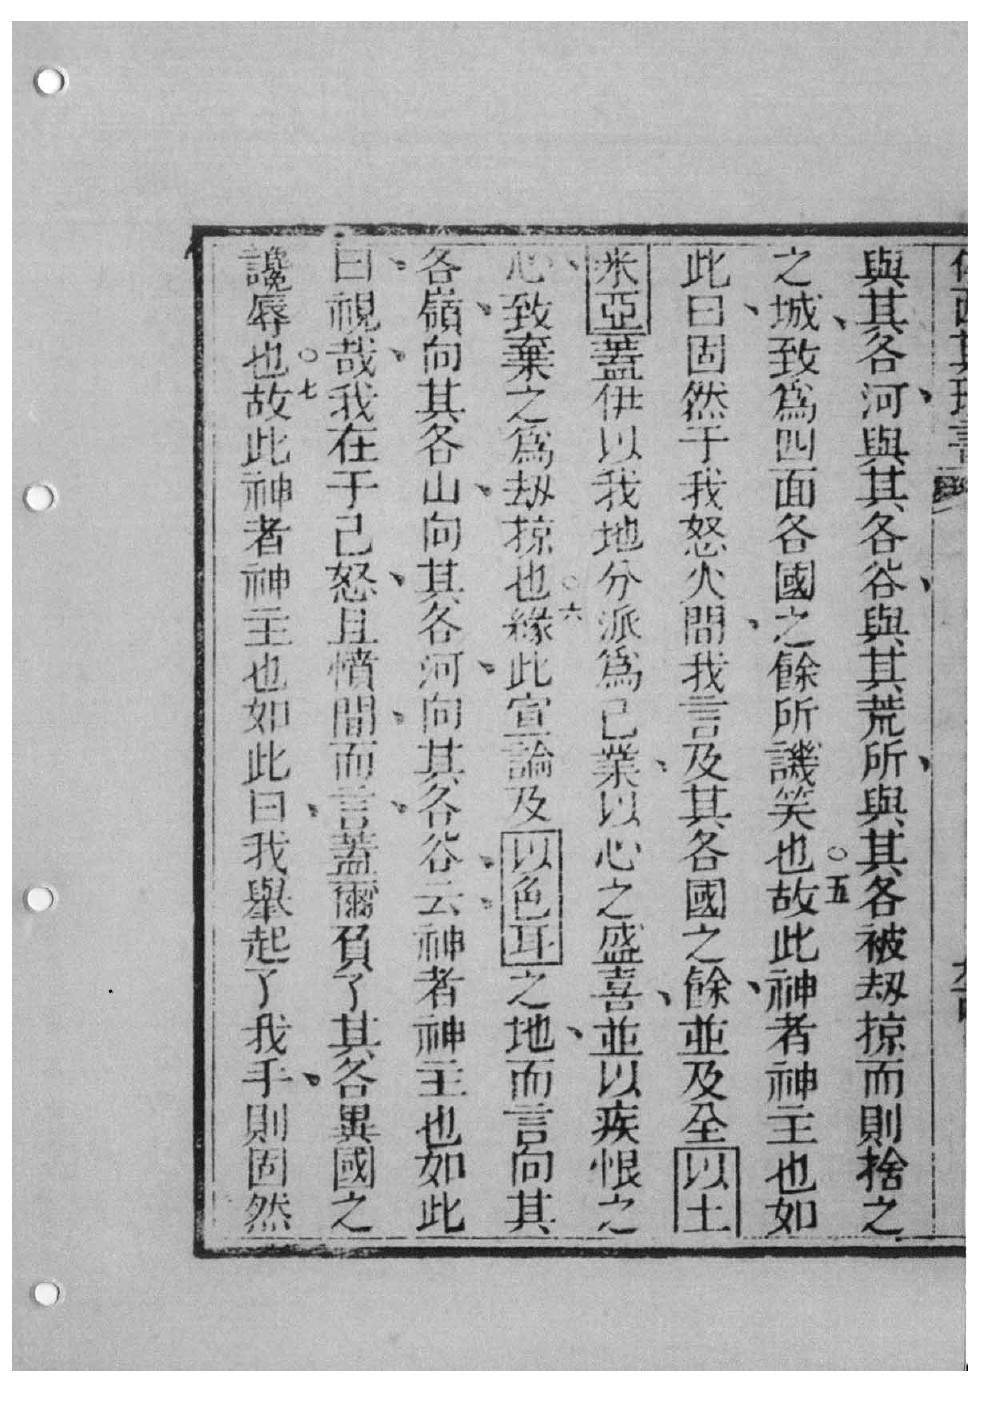 與其各河與其各谷與其荒所與其各被刼掠而則捨之
之城致爲四面各國之餘所譏笑也○五故此神者神主也如
此曰固然于我怒火間我言及其各國之餘並及全以土
米亞蓋伊以我地分派爲己業以心之盛喜並以疾恨之
心致棄之爲刼掠也○六緣此宣論及以色耳之地而言向其
各嶺向其各山向其各河向其各谷云神者神主也如此
曰視哉我在于己怒且憤間而言蓋爾負了其各異國之
讒辱也○七故此神者神主也如此曰我舉起了我手則固然